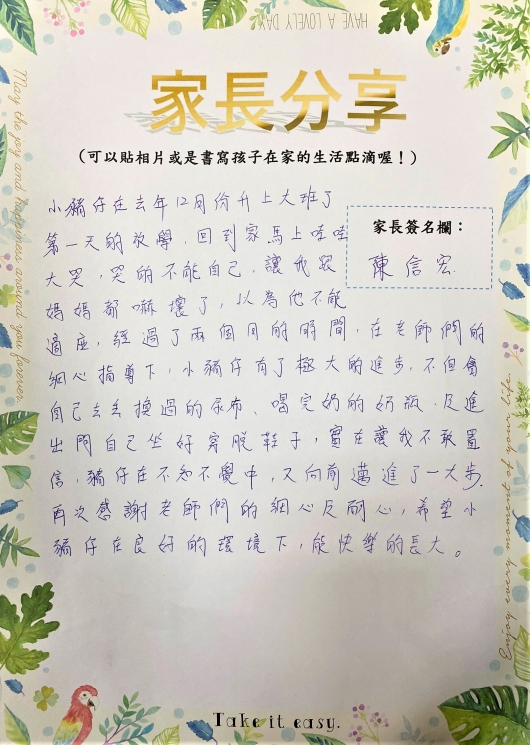 HAVE A LOVELY DAY
家長分享
(可以貼相片或是書寫孩子在家的生活點滴喔！)
小豬仔在去年12月份升上大班了
第一天的放學，回到家馬上哇哇
大哭，哭的不能自己，讓我跟
媽媽都嚇壞了，以為他不能
家長簽名欄：
陳信宏
適應，經過了兩個月的時間，在老師們的
細心指導下，小豬仔有了極大的進步，不但會
自己去丟換過的尿布、喝完奶的奶瓶，及進
出門自己坐好穿脫鞋子，實在讓我不敢置
信，豬仔在不知不覺中，又向前邁進了一大步，
再次感謝老師們的細心及耐心，希望小
豬仔在良好的環境下，能快樂的長大。
May the joy and happiness around you forever.
Enjoy every moment of your life.
Take it easy.